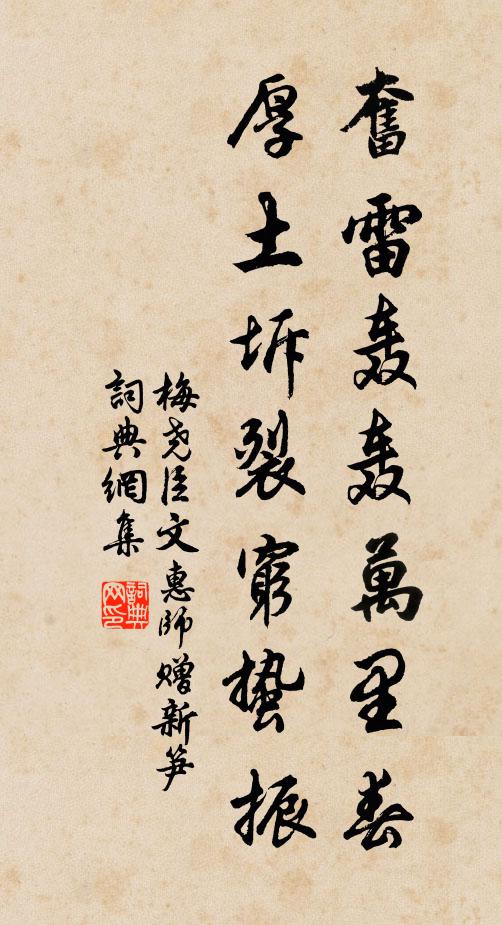 奮雷轰轰萬里春
厚土坼裂窮蟄振
梅尧臣文惠師赠新笋
詞典網集
詞典网印